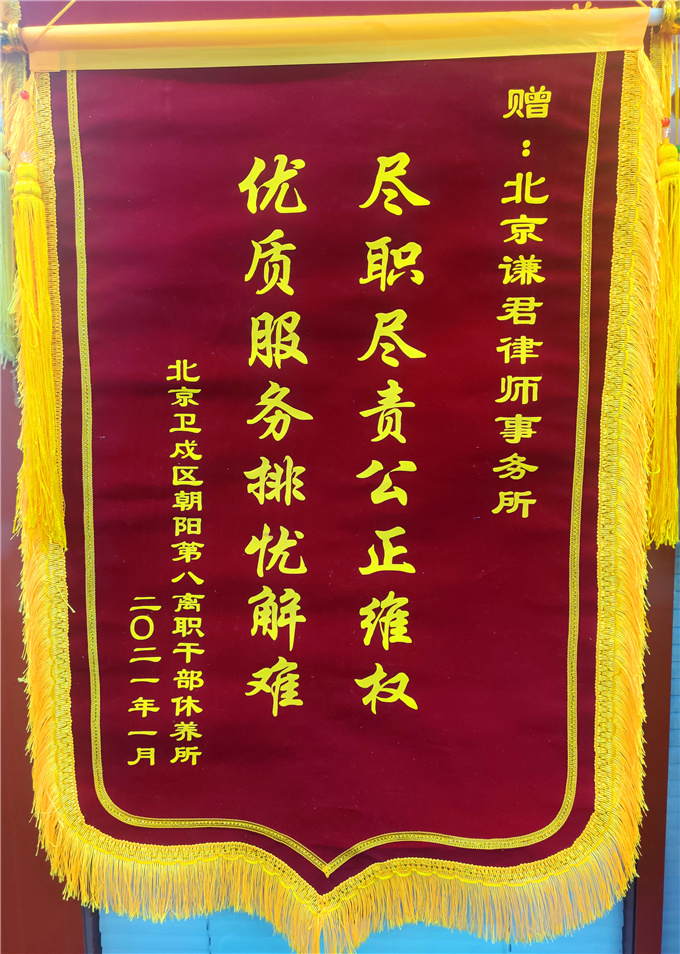 赠：北京谦君律师事务所
尽职尽责公正维权
优质服务排忧解难
北京卫戍区朝阳第八离职干部休养所
二〇二一年一月